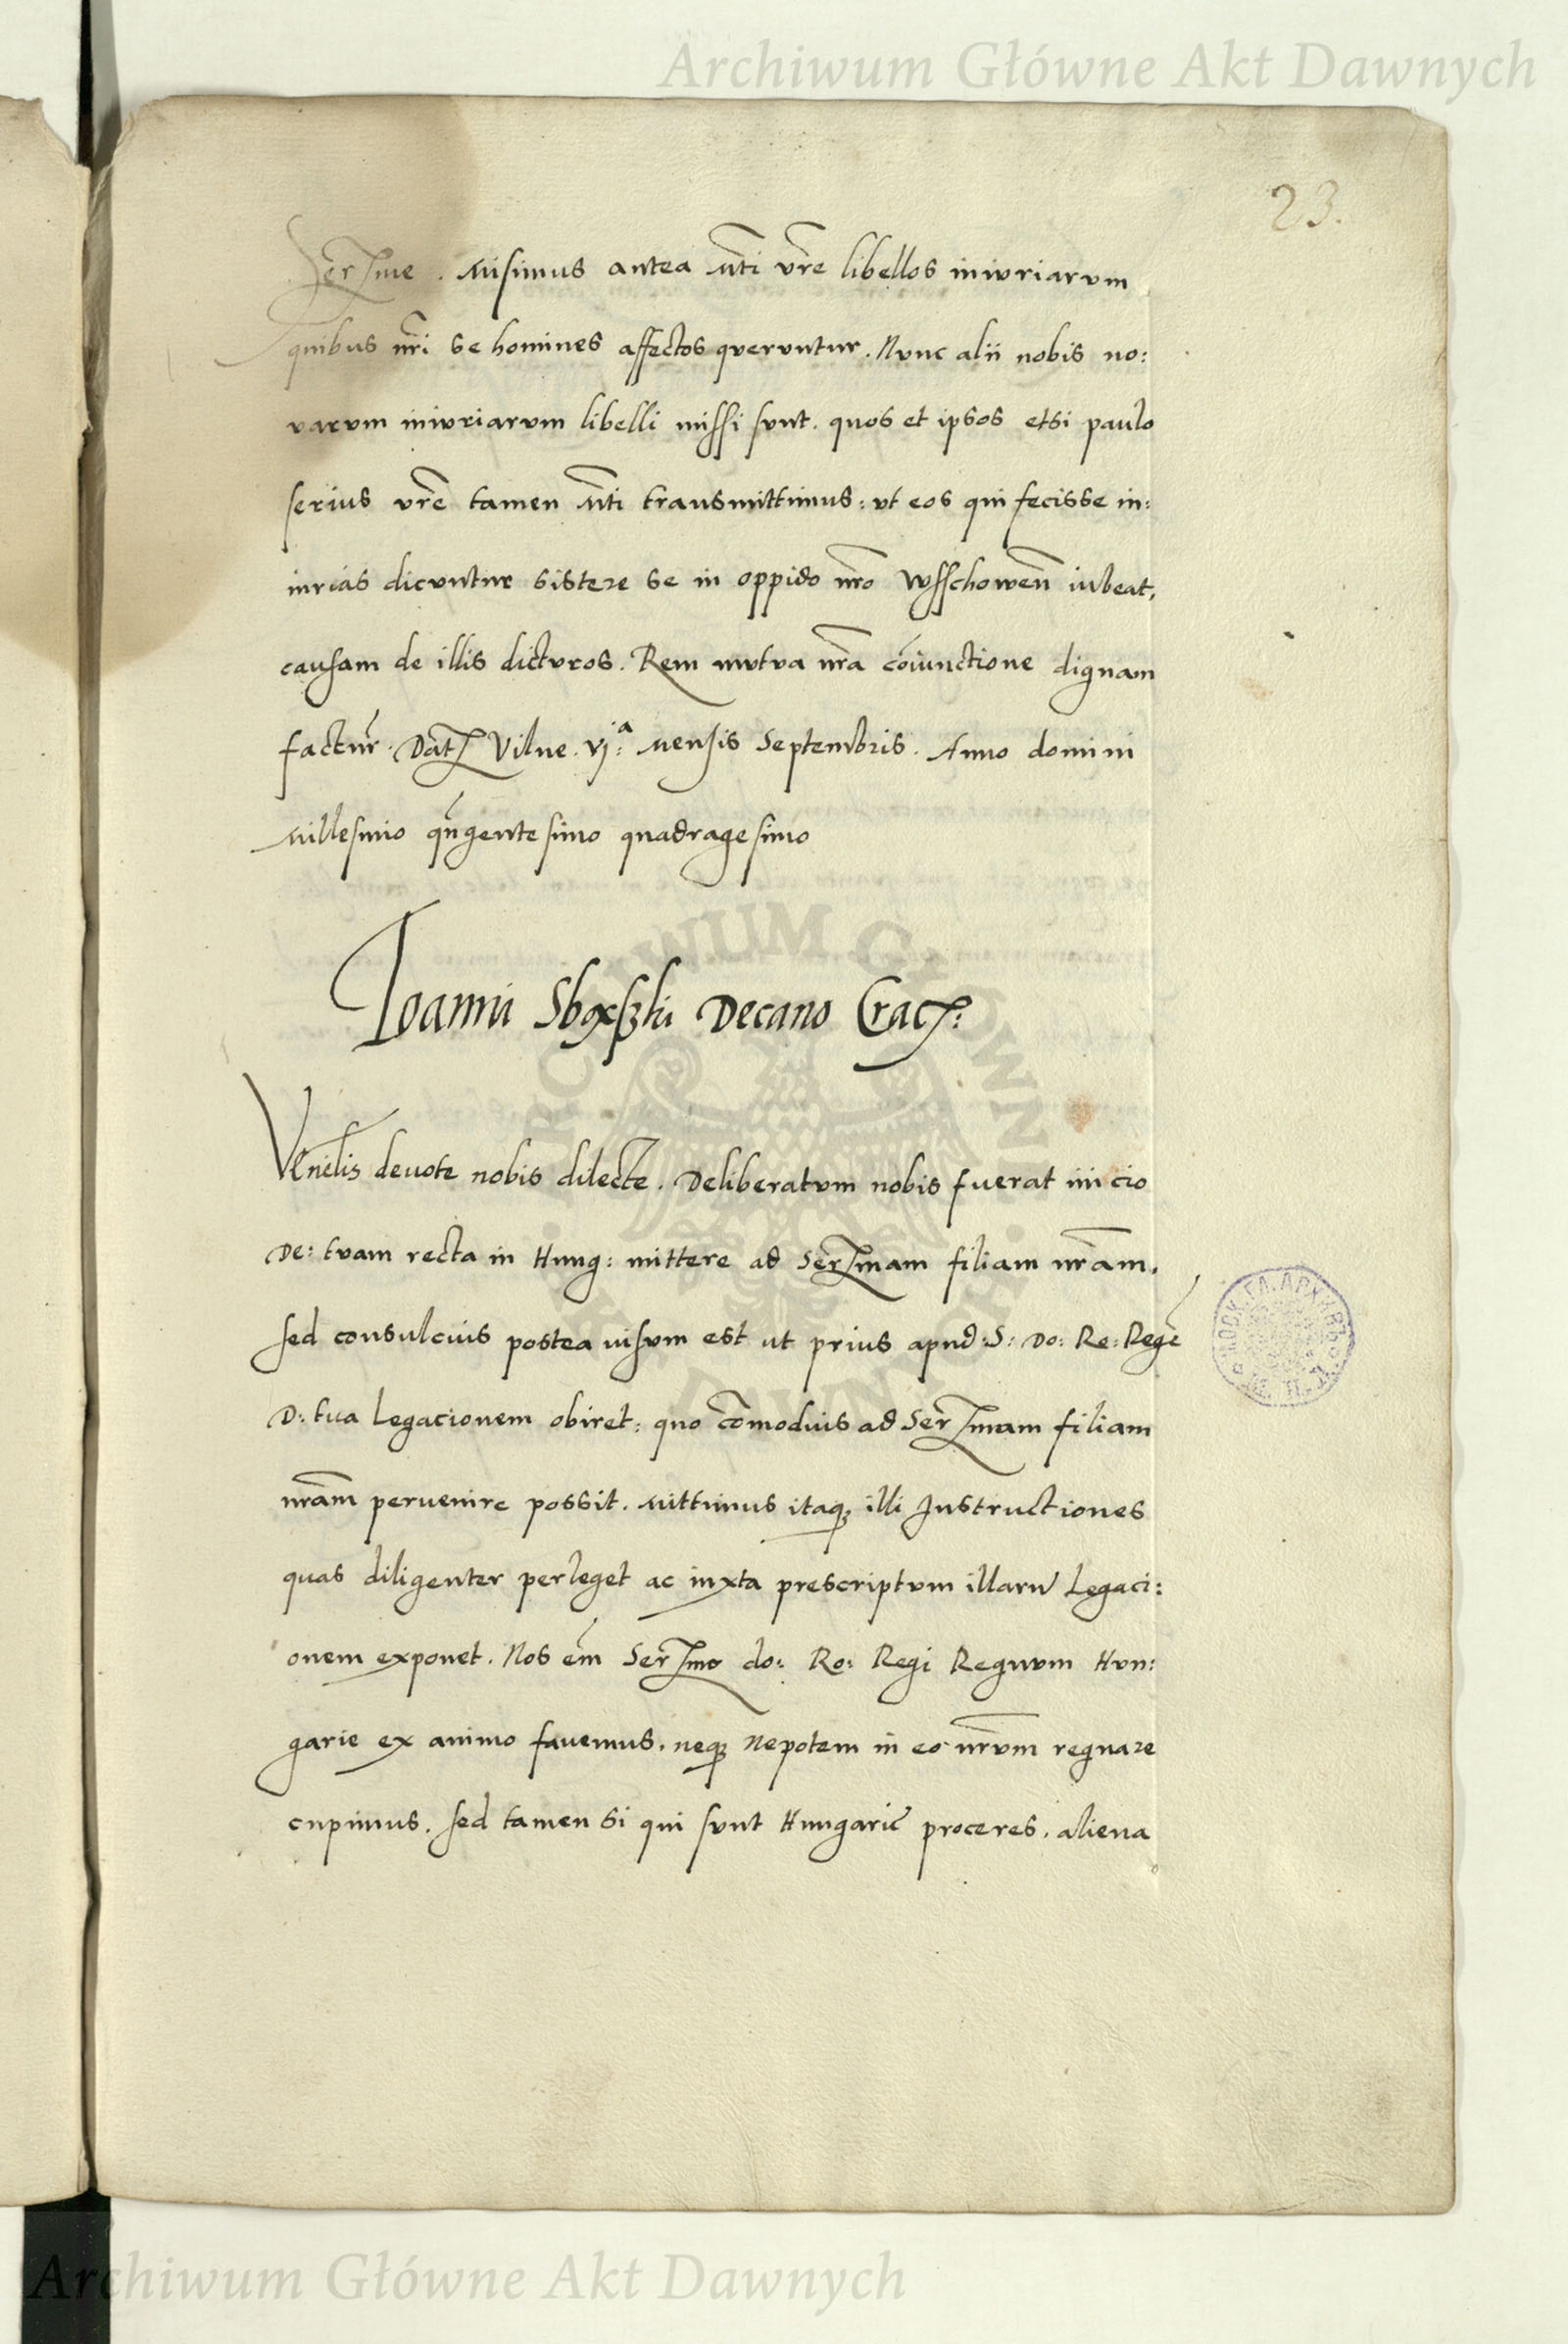 Archiwum Główne Akt Dawnych
23.
Serme. Misimus antea Mti vre libellos iniuriarum
quibus nri se homines affectos queruntur. Nunc alii nobis no:
varum iniuriarum libelli missi sunt. quos et ipsos etsi paulo
serius vre tamen Mti transmittimus: ut eos qui fecisse in:
iurias dicuntur sistere se in oppido nro Wsschowen iubeat,
causam de illis dicturos. Rem mutua nra coniunctione dignam
factur. Dat Vilne. vj.a Mensis Septembris. Anno domini
Millesimo qngentesimo quadragesimo
Ioanni Decano Crac:
Venelis devote nobis dilecte. Deliberatum nobis fuerat inicio
De: tuam recta in Hung: mittere ad Sermam filiam nram.
sed consulcius postea visum est ut prius apud: S: Do: Ro: Rege
D: tua Legacionem obiret: quo comodius ad Sermam filiam
nram pervenire possit. Mittimus itaq; illi Instructiones
quas diligenter perleget ac iuxta prescriptum illaru Legaci:
onem exponet. Nos em Sermo do: Ro: Regi Regnum Hun:
garie ex animo favemus. neq; Nepotem in eo nrum regnare
cupimus. sed tamen si qui sunt Hungarie proceres. aliena
Archiwum Główne Akt Dawnych